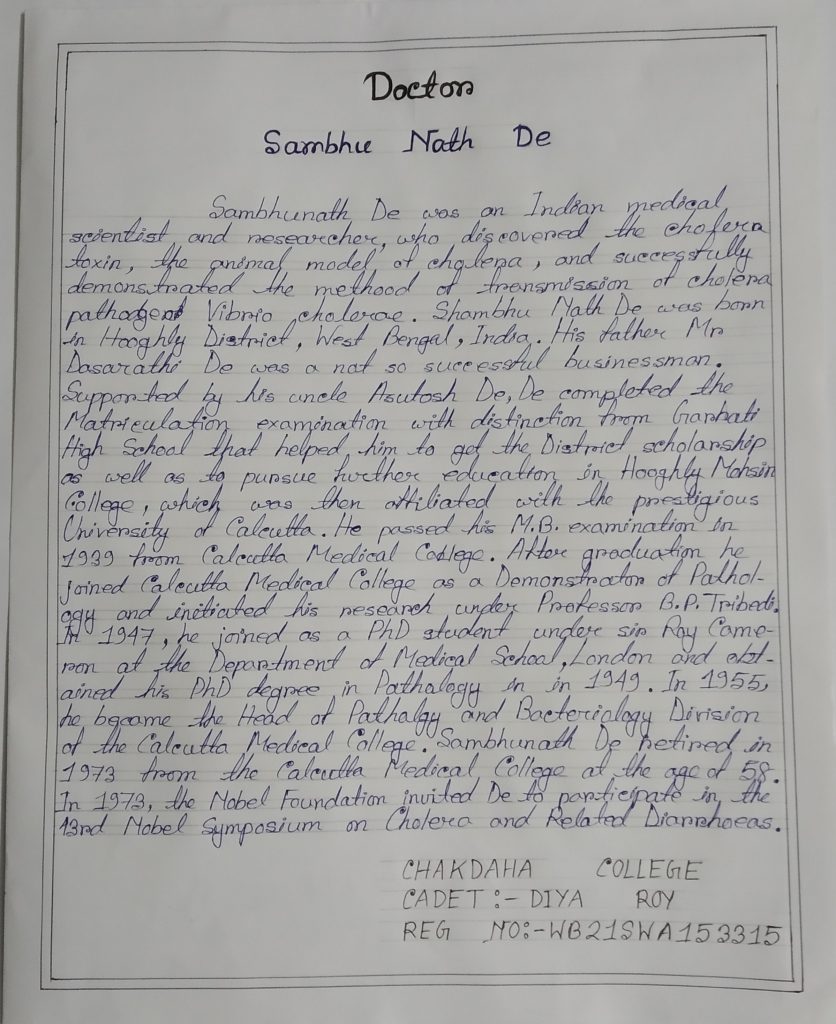 Doctor
Sambhu Nath De
Sambhunath De was an Indian medical
scientist and researcher, who discovered the cholera
toxin, the animal model of cholera, and successfully
demonstrated the method of transmission of cholera
pathogen Vibrio cholerae. Shambhu Nath De was born
in Hooghly District, West Bengal, India. His father Mr
Dasarathi De was a not so successful businessman.
Supported by his uncle Asutosh De, De completed the
Matriculation examination with distinction from Garbati
High School that helped him to get the District scholarship
as well as to pursue further education in Hooghly Mohsin
College, which was then affiliated with the prestigious
University of Calcutta. He passed his M.B. examination in
1939 from Calcutta Medical College. After graduation he
joined Calcutta Medical College as a Demonstrator of Pathol-
ogy and initiated his research under Professor B.P. Tribedi.
In 1947, he joined as a PhD student under sir Roy Came-
ron at the Department of Medical School, London and obt-
ained his PhD degree in Pathology in in 1949. In 1955,
he became the Head of Pathalgy and Bacteriology Division
of the Calcutta Medical College. Sambhunath De retired in
1973 from the Calcutta Medical College at the age of 58.
In 1973, the Nobel Foundation invited De to participate in the
43rd Nobel Symposium on Cholera and Related Diarrhoeas.
CHAKDAHA COLLEGE
CADET :- DIYA ROY
REG NO:-WB21SWA153315